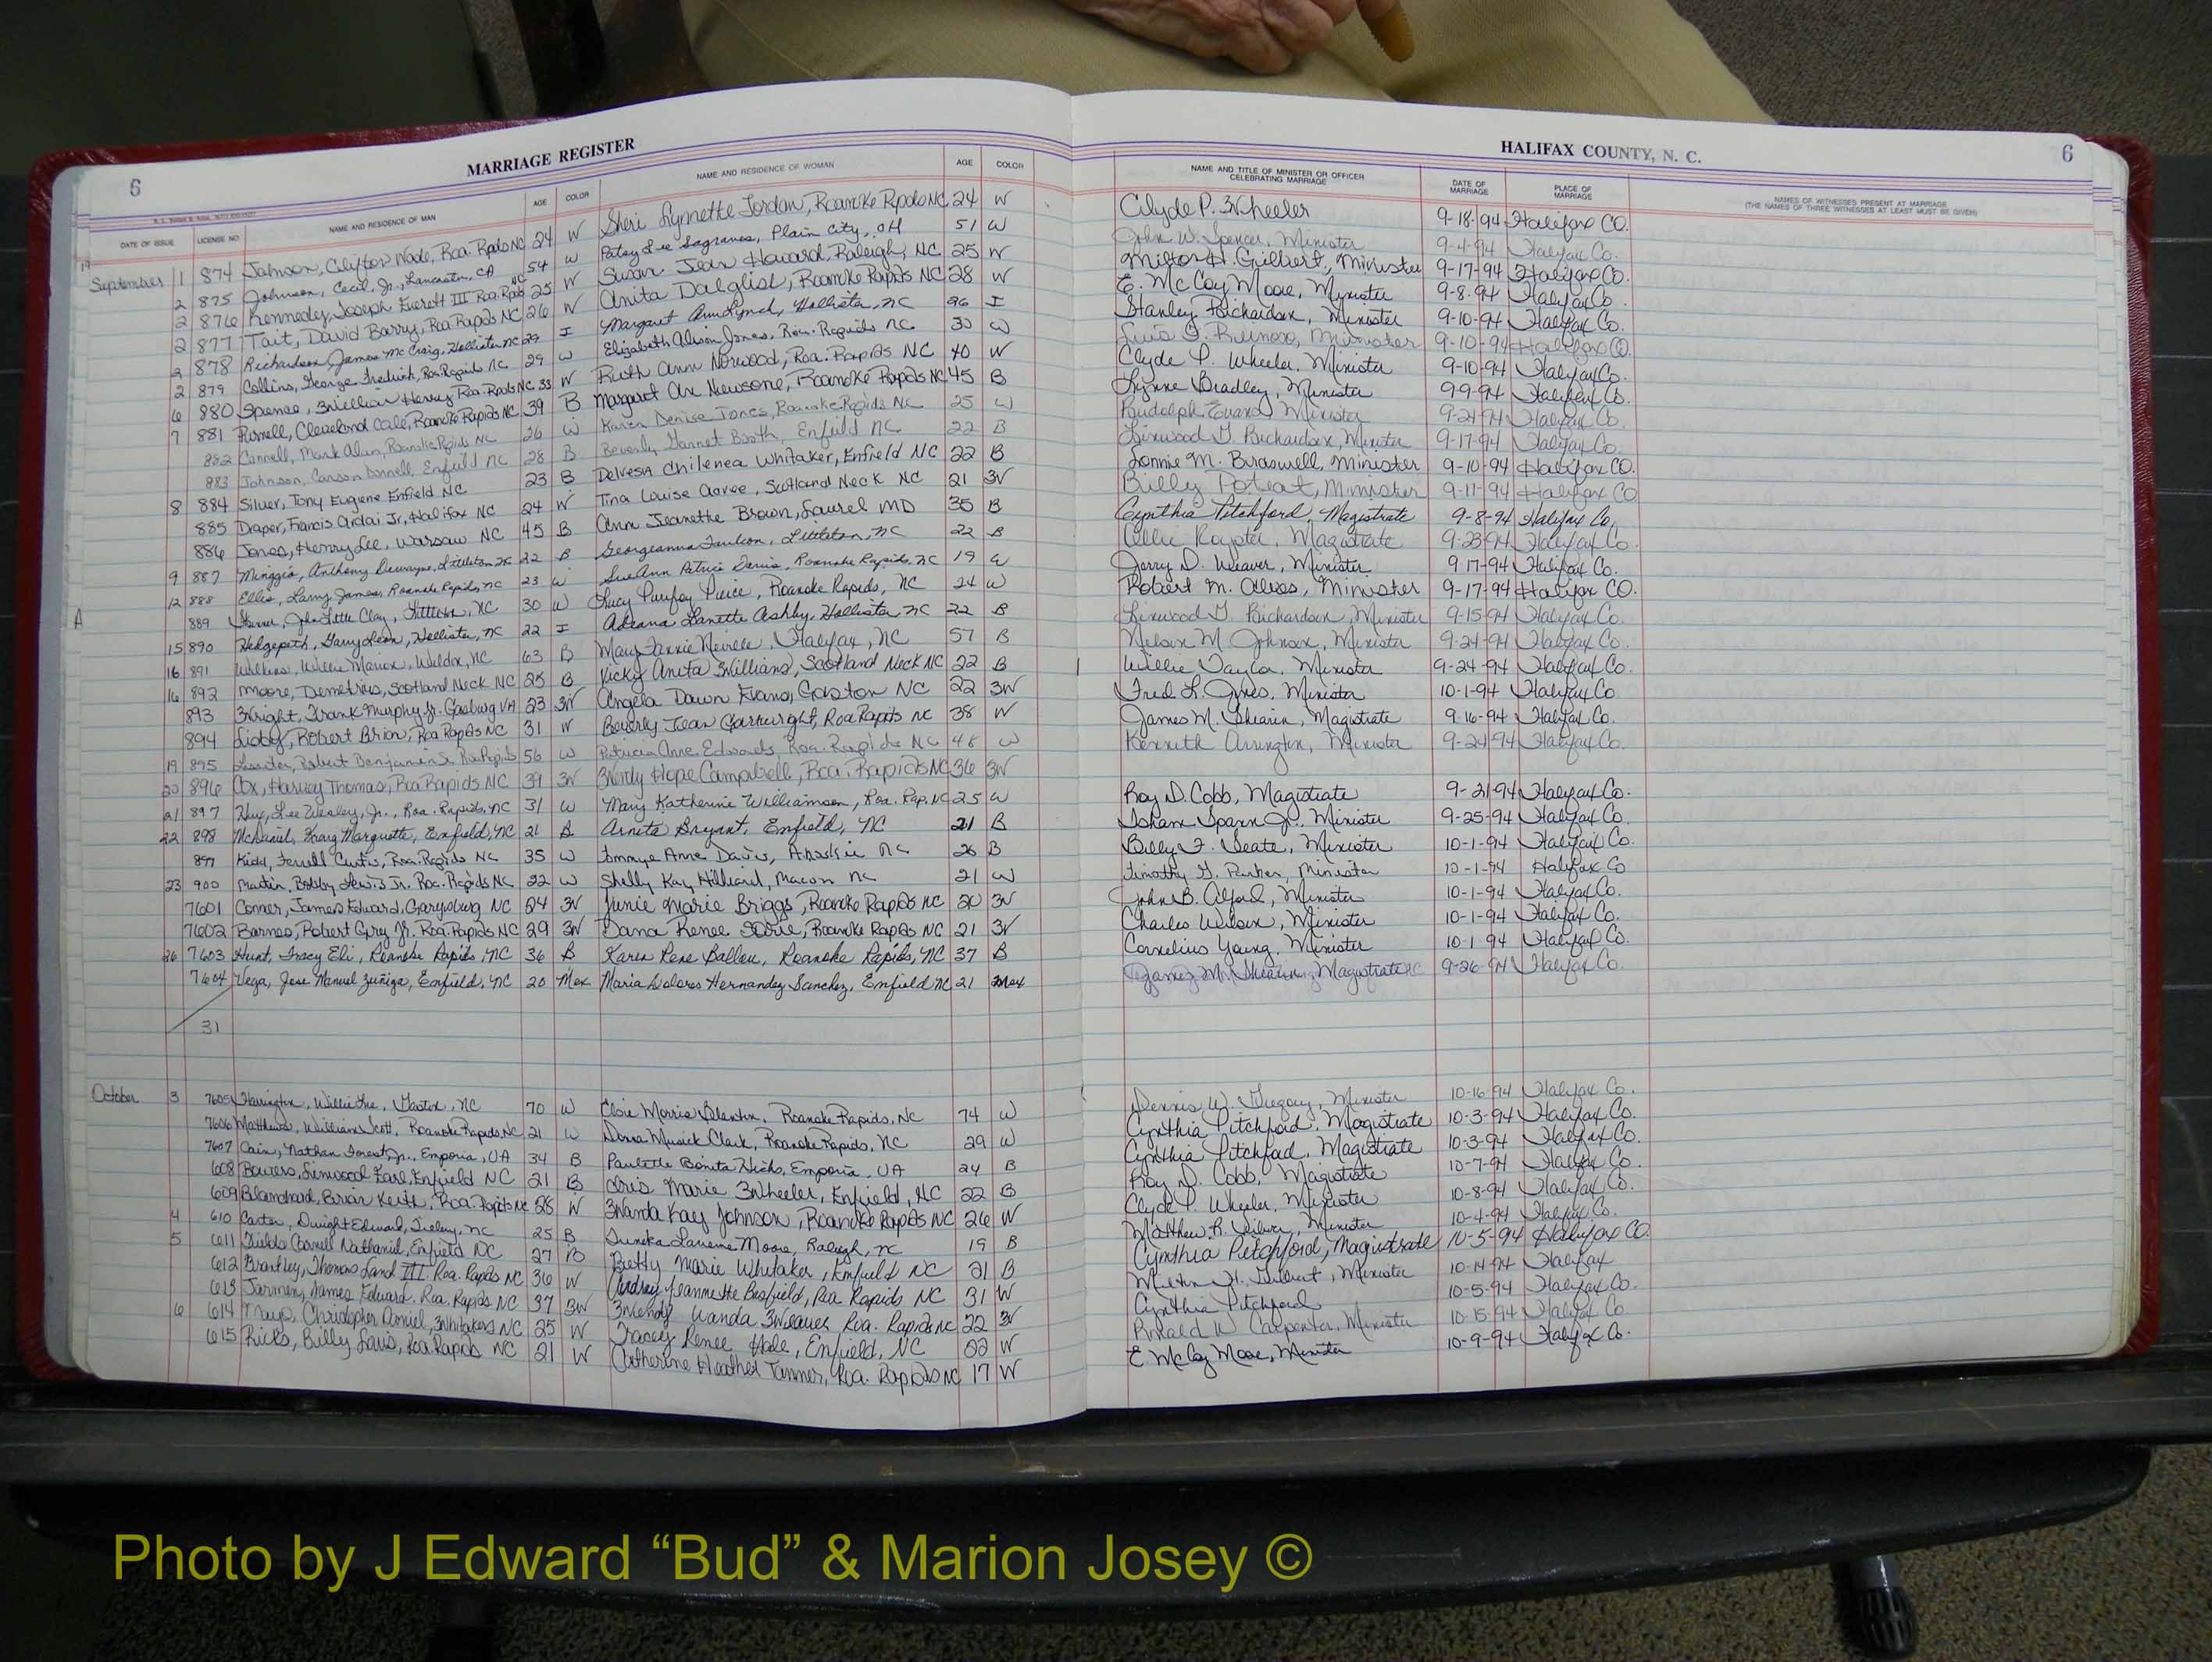 6 MARRIAGE REGISTER HALIFAX COUNTY, N. C. 6
DATE OF ISSUE LICENSE NO NAME AND RESIDENCE OF MAN AGE COLOR NAME AND RESIDENCE OF WOMAN AGE COLOR NAME AND TITLE OF MINISTER OR OFFICER CELEBRATING MARRIAGE DATE OF MARRIAGE PLACE OF MARRIAGE NAMES OF WITNESSES PRESENT AT MARRIAGE (THE NAMES OF THREE WITNESSES AT LEAST MUST BE GIVEN)
September 1 874 Johnson, Clifton Wade, Roa. Rapids NC 24 W Sheri Lynnette Jordan, Roanoke Rapids NC 24 W Clyde P. Wheeler 9-18-94 Halifax CO.
2 875 Johnson, Cecil, Jr., Lancaster, CA 54 W Patsy Lee Sagraves, Plain City, OH 51 W John W. Spencer, Minister 9-4-94 Halifax Co.
2 876 Kennedy, Joseph Everett III Roa. Rapids NC 25 W Susan Jean Howard, Raleigh, NC 25 W Milton H. Gilbert, Minister 9-17-94 Halifax CO.
2 877 Tait, David Barry, Roa Rapids NC 26 W Anita Dalglish, Roanoke Rapids NC 28 W E. McCoy Moore, Minister 9-8-94 Halifax Co.
2 878 Richardson, James McCraig, Hollister NC 29 I Margaret Ann Lynch, Hollister, NC 26 I Stanley Richardson, Minister 9-10-94 Halifax Co.
2 879 Collins, George Fredrick, Roa. Rapids NC 29 W Elizabeth Alison Jones, Roa. Rapids NC 30 W Luis F. Reinoso, Minister 9-10-94 Halifax CO.
6 880 Spence, William Henry Roa. Rapids NC 33 W Ruth Ann Norwood, Roa. Rapids NC 40 W Clyde P. Wheeler, Minister 9-10-94 Halifax Co.
7 881 Purnell, Cleveland Cale, Roanoke Rapids NC 39 B Margaret Ann Newsome, Roanoke Rapids NC 45 B Lynne Bradley, Minister 9-9-94 Halifax Co.
882 Connell, Mark Alan, Roanoke Rapids NC 26 W Karen Denise Jones, Roanoke Rapids NC 25 W Rudolph Evans, Minister 9-24-94 Halifax Co.
883 Johnson, Carson Donnell, Enfield NC 28 B Beverly Garnet Booth, Enfield NC 22 B Linwood G. Richardson, Minister 9-17-94 Halifax Co.
8 884 Silver, Tony Eugene Enfield NC 23 B Delvesa Chilenea Whitaker, Enfield NC 22 B Lonnie M. Braswell, Minister 9-10-94 Halifax CO.
885 Draper, Francis Ardai Jr, Halifax NC 24 W Tina Louise, Scotland Neck NC 21 W Billy Poteat, Minister 9-11-94 Halifax CO
886 Jones, Henry Lee, Warsaw NC 45 B Ann Jeanette Brown, Laurel MD 35 B Cynthia Pitchford, Magistrate 9-8-94 Halifax Co,
9 887 Minggia, Anthony Dewayne, Littleton NC 22 B Georgeanna Faulcon, Littleton, NC 22 B Magistrate 9-23-94 Halifax Co.
12 888 Ellis, Larry James, Roanoke Rapids, NC 23 W Sue Ann Patrice Davis, Roanoke Rapids, NC 19 W Jerry D. Weaver, Minister 9-17-94 Halifax Co.
A 889 John Little Clay, Littleton, NC 30 W Lucy Purefoy Pierce, Roanoke Rapids, NC 24 W Robert M. Alves, Minister 9-17-94 Halifax CO.
15 890 Hedgepeth, Gary Leon, Hollister, NC 22 I Adeana Lanette Ashby, Hollister, NC 22 B Linwood G. Richardson, Minister 9-15-94 Halifax Co.
16 891 Wilkins, Willie Marion, Weldon, NC 63 B Mary Fannie Neville, Halifax, NC 57 B Nelson M. Johnson, Minister 9-24-94 Halifax Co.
16 892 Moore, Demetrius, Scotland Neck NC 25 B Vicky Anita Williams, Scotland Neck NC 22 B Willie Taylor, Minister 9-24-94 Halifax Co.
893 Wright, Frank Murphy Jr. Gasburg VA 23 W Angela Dawn Evans, Gaston NC 22 W Fred L. Jones, Minister 10-1-94 Halifax Co
894 Libby, Robert Brian, Roa Rapids NC 31 W Beverly Jean Cartwright, Roa Rapids NC 38 W James M. Shearin, Magistrate 9-16-94 Halifax Co.
19 895 Robert Benjamin Roa Rapids 56 W Patricia Anne Edwards, Roa. Rapids NC 48 W Kenneth Arrington, Minister 9-24-94 Halifax Co.
20 896 Cox, Harvey Thomas, Roa Rapids NC 39 W Wendy Hope Campbell, Roa. Rapids NC 36 W
21 897 Hux, Lee Wesley, Jr., Roa. Rapids, NC 31 W Mary Katherine Williamson, Roa. Rap. NC 25 W Roy D. Cobb, Magistrate 9-21-94 Halifax Co.
22 898 McDaniel, Krag Marquette, Enfield, NC 21 B Arnita Bryant, Enfield, NC 21 B Isham Spann Jr., Minister 9-25-94 Halifax Co.
899 Kidd, Terrell Curtis, Roa. Rapids NC 35 W Tommye Anne Davis, Ahoskie NC 26 B Billy F. Seate, Minister 10-1-94 Halifax Co.
23 900 Martin, Bobby Lewis Jr. Roa. Rapids NC 22 W Shelly Kay Hilliard, Macon NC 21 W Timothy G. Parker, Minister 10-1-94 Halifax Co
7601 Conner, James Edward, Garysburg NC 24 W Junie Marie Briggs, Roanoke Rapids NC 20 W John B. Alford, Minister 10-1-94 Halifax Co.
7602 Barnes, Robert Grey Jr. Roa. Rapids NC 29 W Dana Renee, Roanoke Rapids NC 21 W Charles Wilson, Minister 10-1-94 Halifax Co.
26 7603 Hunt, Tracy Eli, Roanoke Rapids, NC 36 B Karen Rene Ballou, Roanoke Rapids, NC 37 B Cornelius Young, Minister 10-1-94 Halifax Co.
7604 Vega, Jose Manuel Zuniga, Enfield, NC 20 Mex Maria Dolores Hernandez Sanchez, Enfield NC 21 Mex James M. Shearin, Magistrate 9-26-94 Halifax Co.
31
October 3 7605 Harrington, Willie, Gaston, NC 70 W Elsie Morris, Roanoke Rapids, NC 74 W Dennis W. Gregory, Minister 10-16-94 Halifax Co.
7606 Matthews, William Scott, Roanoke Rapids, NC 21 W Donna Musick Clark, Roanoke Rapids, NC 29 W Cynthia Pitchford, Magistrate 10-3-94 Halifax Co.
7607 Cain, Nathan Forest, Jr., Emporia, VA 34 B Paulette Bonita Hicks, Emporia, VA 24 B Cynthia Pitchford, Magistrate 10-3-94 Halifax Co.
608 Bowers, Linwood Earl, Enfield NC 21 B Doris Marie Wheeler, Enfield, NC 22 B Roy D. Cobb, Magistrate 10-7-94 Halifax Co.
609 Blanchard, Brian Keith, Roa. Rapids NC 28 W Wanda Kay Johnson, Roanoke Rapids NC 26 W Clyde P. Wheeler, Minister 10-8-94 Halifax Co.
4 610 Carter, Dwight Edward, NC 25 B Moore, Raleigh, NC 19 B Matthew R. Silver, Minister 10-4-94 Halifax Co.
5 611 Fields Cornell Nathaniel, Enfield NC 27 B Betty Marie Whitaker, Enfield NC 21 B Cynthia Pitchford, Magistrate 10-5-94 Halifax CO.
612 Brantley, Thomas Land III. Roa. Rapids NC 36 W Audrey Jeannette, Roa Rapids NC 31 W Milton H. Gilbert, Minister 10-14-94 Halifax
613 Jarman, James Edward. Roa. Rapids NC 37 W Wendy Wanda Weaver Roa. Rapids NC 22 W Cynthia Pitchford 10-5-94 Halifax Co.
6 614 Mayo, Christopher Daniel, Whitakers NC 25 W Tracey Renee Hale, Enfield, NC 22 W Ronald W Carpenter, Minister 10-15-94 Halifax Co
615 Ricks, Billy Louis, Roa Rapids NC 21 W Catherine Heather Tanner, Roa. Rapids NC 17 W E McCoy Moore, Minister 10-9-94 Halifax Co.
Photo by J Edward “Bud” & Marion Josey ©